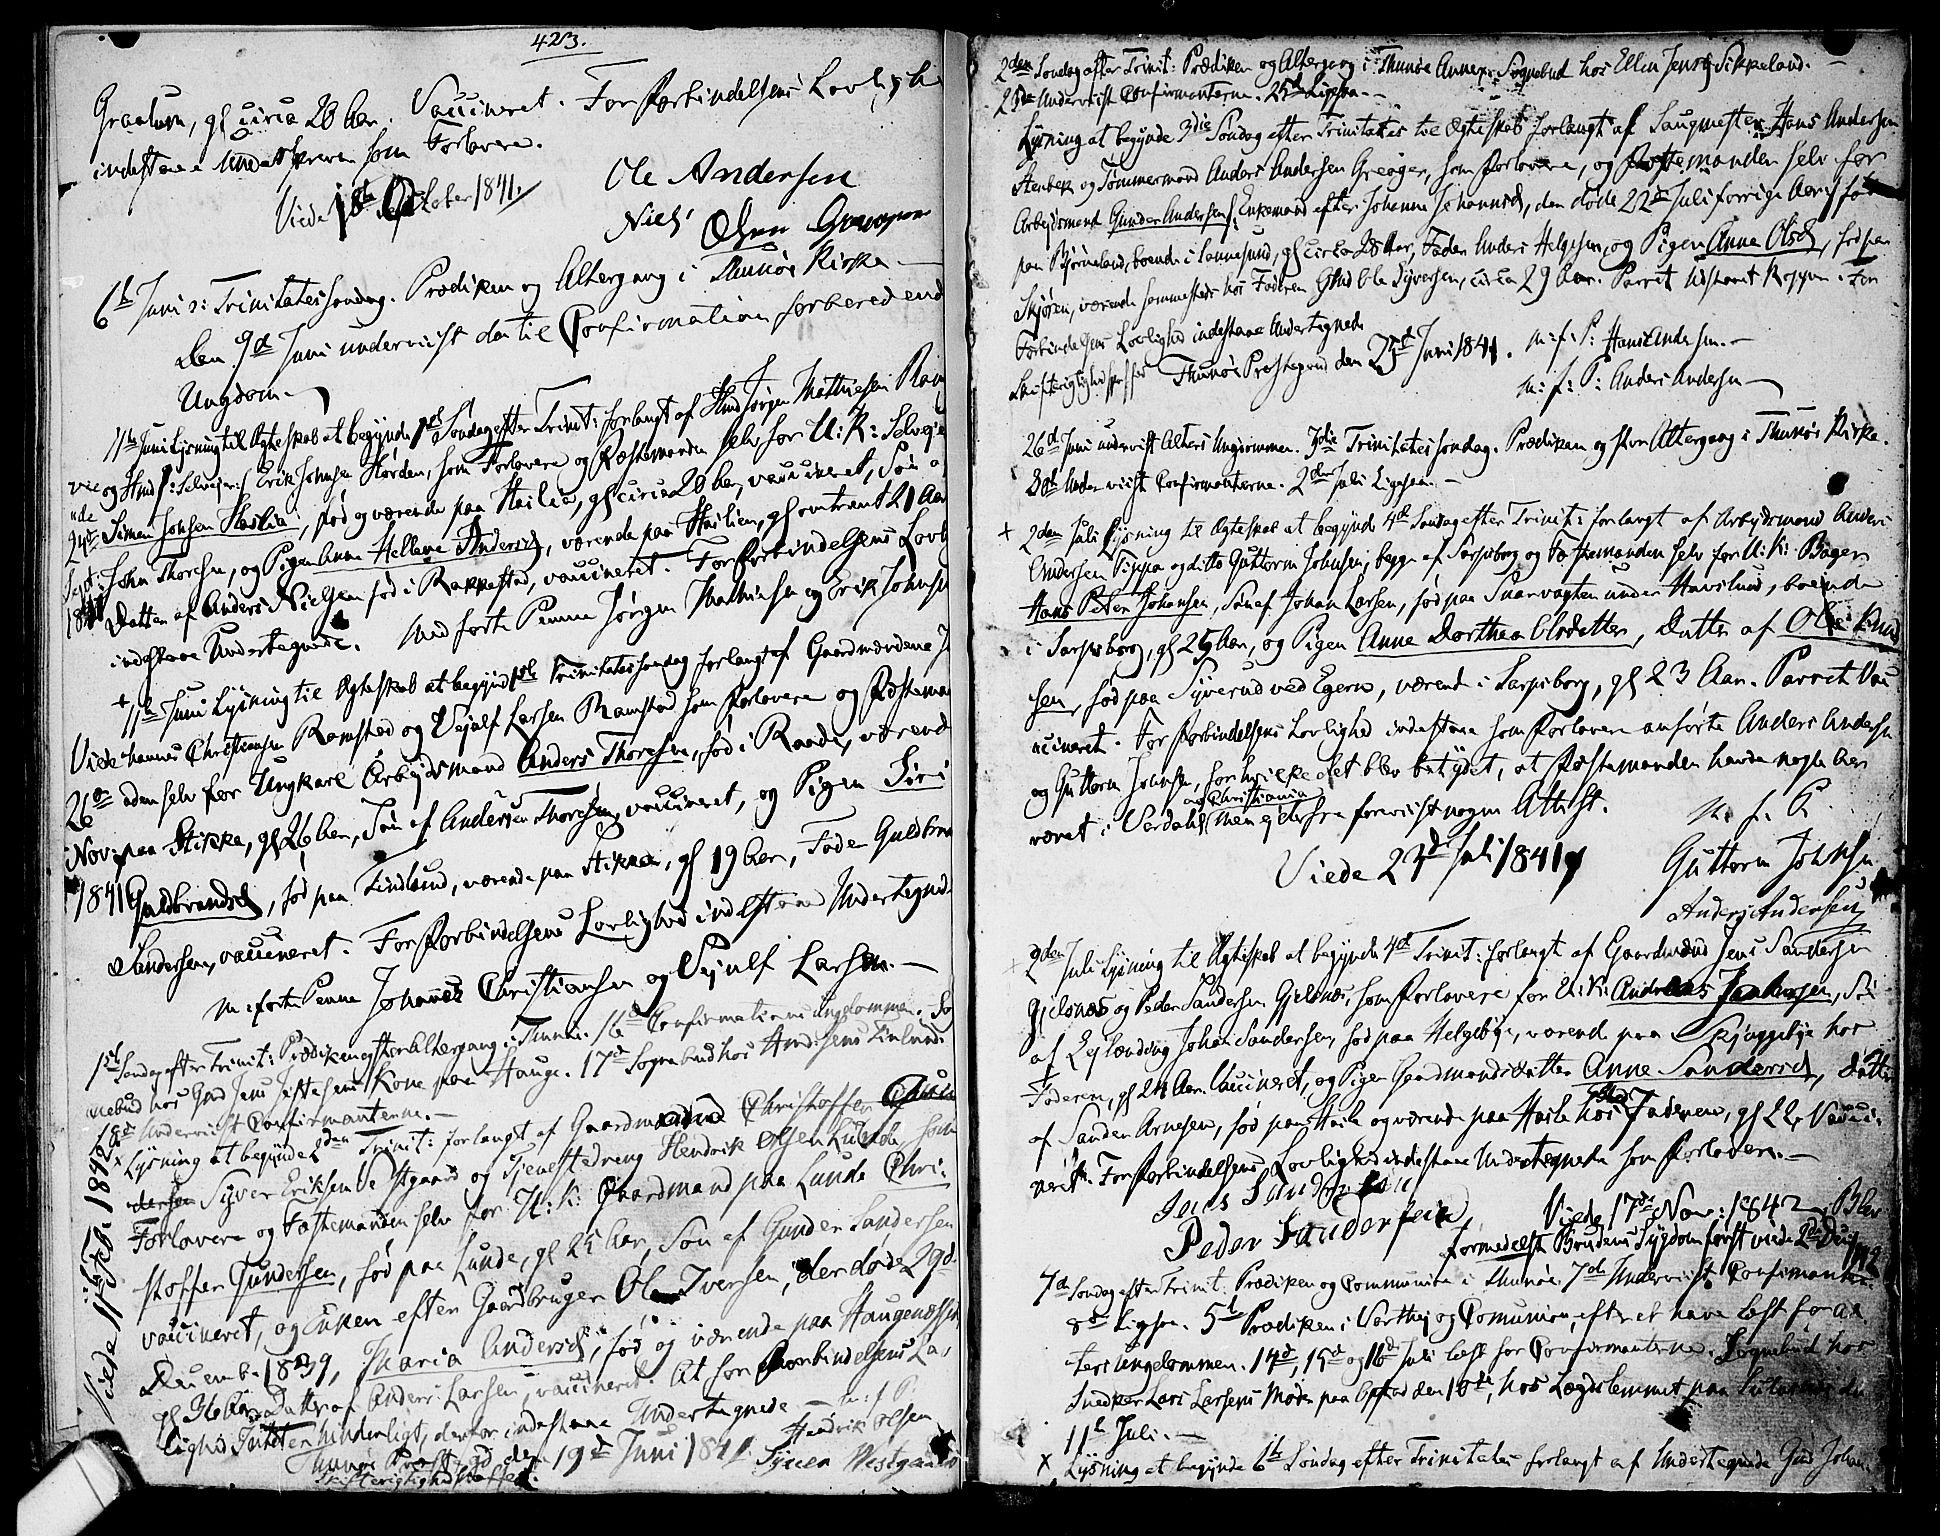 423.
Graatum, gl circa 28 Aar. Vaccineret. For Forbindelsens Lovlighed
indestaae Underskrevne som Forlovere.
Viede 1ste October 1841.
Ole Andersen
Niels Olsen
6te Juni o: Trinitatissöndag. Prædiken og Altergang i Thunöe Kirke
Den 9de Juni underviist den til Confirmation forberedende
Ungdom.
11te Juni Lysning til Ægteskab at begynde 1ste Söndag efter Trinit: forlangt af Jörgen Mathiesen
og Erik Johnsen Hörden, som Forlovere og Fæstemanden selv for U: K: Selveier
24de Simen Johsen Haslia, född og værende paa Haslie, gl circa 28 Aar, vaccineret, Sön af
Sept: John Thoresen, og Pigen Anne Hellene Andersd, værende paa Haslien, gl omtrent 21 Aar
1841 Datter af Anders Nielsen fød i Rakkestad, vaccineret. For Forbindelsens Lovlighed
indestaae Undertegnede. Med förte Penne Jörgen Mathiesen og Erik Johnsen
+ 11te Juni Lysning til Ægteskab at begynde 1ste Trinitatissöndag forlangt af Gaardmændene
Viede hannes Christiansen Ramstad og Vejulf Larsen Ramstad som Forlovere og Fæstemanden
26de selv for Ungkarl Arbejdsmand Anders Thoresen, fød i Raade, værende
Nov: paa Stikka, gl 26 Aar, Sön af Anders Thoresen, vaccineret, og Pigen Siri
1841 Guldbrandsd, fød paa Findlund, værende paa Stikka, gl 19 Aar, Fader Guldbrand
Sandersen, vaccineret. For Forbindelsens Lovlighed indestaae Undertegnede
m: förte Penne Johannes Christiansen og Vejulf Larsen.
1ste Söndag efter Trinit: Prædiken og stor Altergang i Thunöe. 16de Confirmations ungdommen.
nebud hos Jens Kone paa Hauge. 17de Sognebud hos
18de Underviist Confirmanterne.
x Lysning at begynde 2den Trinit: forlangt af Gaardmændene Christoffer
dersen Syver Eriksen Vestgaard og Tjenestedreng Hendrik Olsen Lunde, som
Forlovere og Fæstemanden selv for U: K: Gaardmand paa Lunde Chri-
stoffer Gundersen, född paa Lunde, gl 25 Aar, Sön af Gunder Sandersen
vaccineret, og Enken efter Gaardbruger Ole Iversen, der döde 29de
December 1839, Maria Andersd, född og værende paa Haugenæsset
gl 36 Aar, Datter af Anders Larsen, vaccineret. At for Forbindelsens Lov-
lighed Intet er hinderligt, derfor indestaae Undertegnede m: f: P:
Thunöe Præstegd den 19de Juni 1841. Hendrik Olsen
Skifterigtighed Syver Westgaard
Viede 11te Feb. 1842
2den Söndag efter Trinit: Prædiken og Altergang i Thunöe Annex. Sognebud hos Ellen Jensd Sikkeland.
23de Underviist Confirmanterne. 25de Ligsen.
Lysning at begynde 3die Söndag efter Trinitatis til Ægteskab forlangt af Saugmester Hans Andersen
Stenbek og Tömmermand Anders Andersen Greager, som Forlovere, og Fæstemanden selv for
Arbejdsmand Gunder Andersen, Enkemand efter Johanne Johannesd, den döde 22de Juli forrige Aar, fød
paa Björneland, boende i Sannesund, gl circa 28 Aar, Fader Anders Helgesen, og Pigen Anne Olsd, född paa
Skjören, værende sammesteds hos Faderen Ole Syversen, circa 29 Aar. Parret Kopper. For
Forbindelsens Lovlighed indestaae Undertegnede
Skifterigtighed Thunöe Præstegaard den 25de Juni 1841. m: f: P: Hans Andersen.
m: f: P: Anders Andersen
26de Juni underviist Alters Ungdommen. 3die Trinitatissöndag. Prædiken og stor Altergang i Thunöe Kirke.
30te Underviist Confirmanterne. 2den Juli Ligsen.
+ 2den Juli Lysning til Ægteskab at begynde 4de Söndag efter Trinit: forlangt af Arbejdsmand Anders
Andersen Pippa og ditto Guttorm Johnsen, begge af Sarpsborg og Fæstemanden selv for U: K: Bager
Hans Peter Johansen, Sön af Johan Larsen, född paa Snarvagten under Hauslund, boende
i Sarpsborg, gl 25 Aar, og Pigen Anne Dorthea Olsdatter, Datter af Ole Knud
sen, född paa Syverud ved Egeren, værende i Sarpsborg, gl 23 Aar. Parret Vac
cineret. For Forbindelsens Lovlighed indestaae som Forlovere anförte Anders Andersen
og Guttorm Johnsen, for hvilke det blev betydet, at Fæstemanden havde nogle Aar
været i Værdalen og Christiania, men ej derfra foreviist nogen Attest.
m. f. P.
Viede 23de Juli 1841 Guttorm Johnsen
Anders Andersen
+ 2den Juli Lysning til Ægteskab at begynde 4de Trinit: forlangt af Gaardmænd Jens Sandersen
Gjelsnæs og Peder Sandersen Gjelsnæs, som Forlovere for U: K: Andreas Johansen, Sön
af Ejlænding Johan Sandersen, född paa Helgebye, værende paa Skjeggebye hos
Faderen, gl 24 Aar. Vaccineret, og Pigen Gaardmandsdatter Anne Sandersd, Datter
af Sander Arnesen, född paa Hasle og værende paa Hasle hos Faderen, gl 22 Vacci-
neret. For Forbindelsens Lovlighed indestaae Undertegnede som Forlovere.
Jens Sandersen
Peder Sandersen Viede 17de Nov: 1842, Blev
formedelst Brudens Sygdom först viede 2den Dec 1842
7de Söndag efter Trinit. Prædiken og Communion i Thunöe. 7de Underviist Confirmanterne.
8de Ligsen. 5te Prædiken i Varteig og Comunion, efter at have læst for Al-
ters Ungdommen. 14de, 15de og 16de Juli læst for Confirmanterne. Sognebud hos
Snedker Lars Larsens Moder paa Opstad den 10de, hos Lægdslemmet paa
11te Juli.
x Lysning at begynde 6te Söndag efter Trinitatis forlangt af Undertegnede Johan